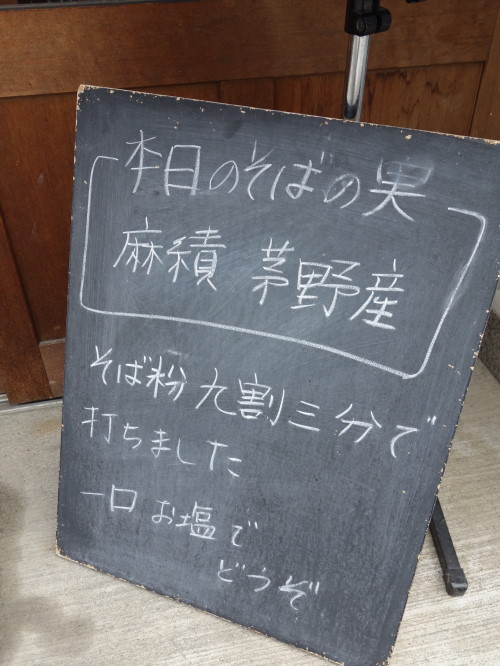 本日のそばの実
麻績 茅野産
そば粉九割三分で
打ちました
一口 お塩で
どうぞ